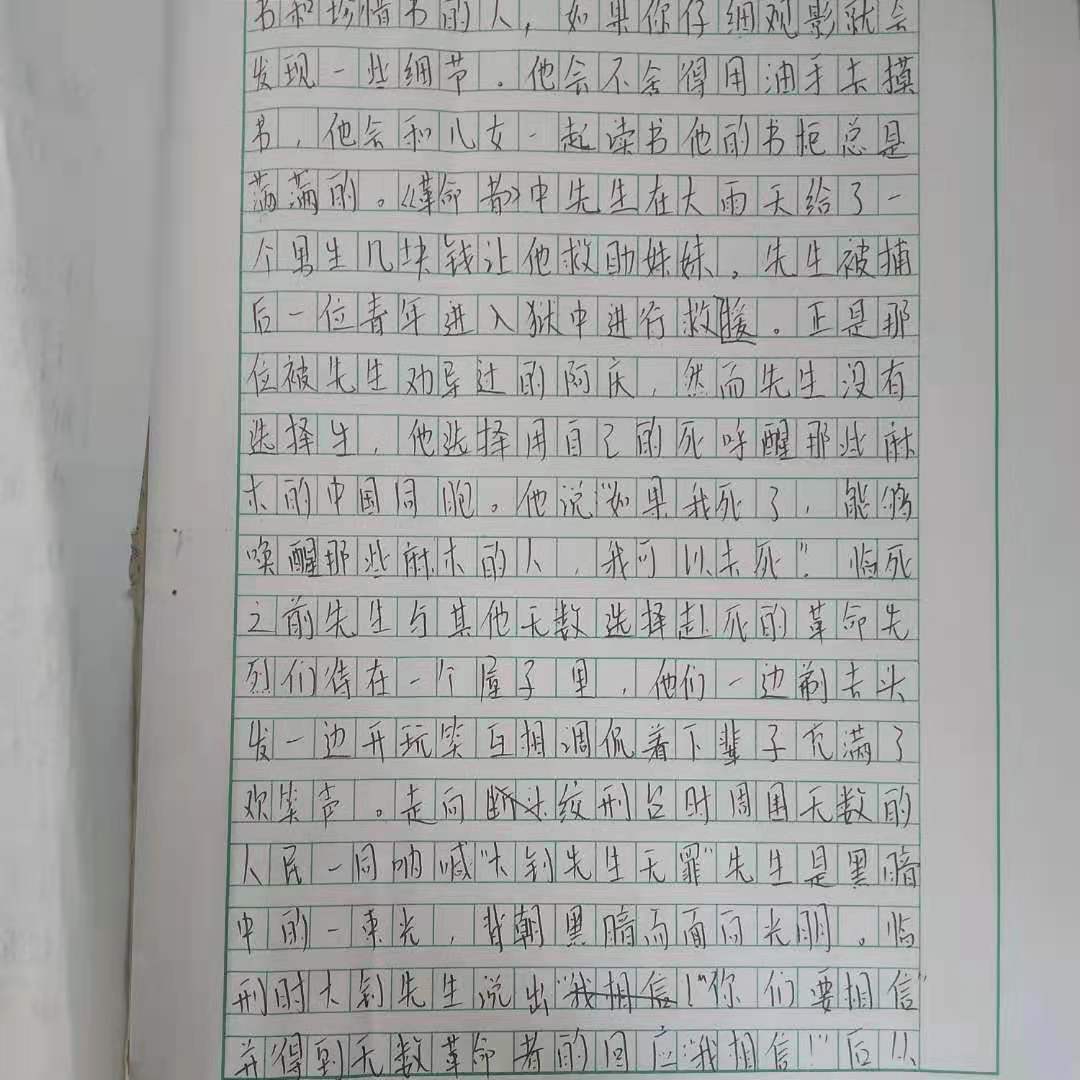 书和珍惜书的人，如果你仔细观影就会
发现一些细节。他会不舍得用油手去摸
书，他会和儿女一起读书他的书柜总是
满满的。《革命者》中先生在大雨天给了一
个男生几块钱让他救助妹妹，先生被捕
后一位青年进入狱中进行救援。正是那
位被先生劝导过的阿庆，然而先生没有
选择生，他选择用自己的死呼醒那些麻
木的中国同胞。他说"如果我死了，能够
唤醒那些麻木的人，我可以去死"。临死
之前先生与其他无数选择赴死的革命先
烈们待在一个屋子里，他们一边剃去头
发一边开玩笑互相调侃着下辈子充满了
欢笑声。走向绞刑台时周围无数的
人民一同呐喊"大钊先生无罪"先生是黑暗
中的一束光，背朝黑暗而面向光明。临
刑时大钊先生说出"我相信！"你们要相信"
并得到无数革命者的回应"我相信！"后从